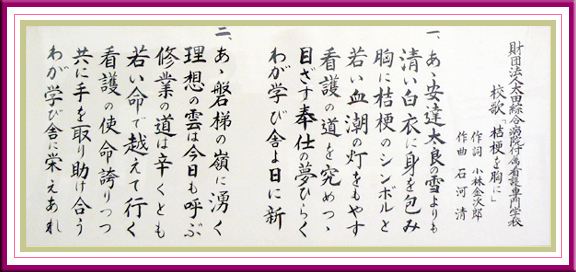 財団法人太田綜合病院付属看護専門学校
校歌「桔梗を胸に」
作詞 小林金次郎
作曲 石河 清
一、あゝ安達太良の雪よりも
清い白衣に身を包み
胸に桔梗のシンボルと
若い血潮の灯をもやす
看護の道を究めつゝ
目ざす奉仕の夢ひらく
わが学び舎よ日に新
二、あゝ磐梯の嶺に湧く
理想の雲は今日も呼ぶ
修業の道は辛くとも
若い命で越えて行く
看護の使命誇りつつ
共に手を取り助け合う
わが学び舎に栄えあれ